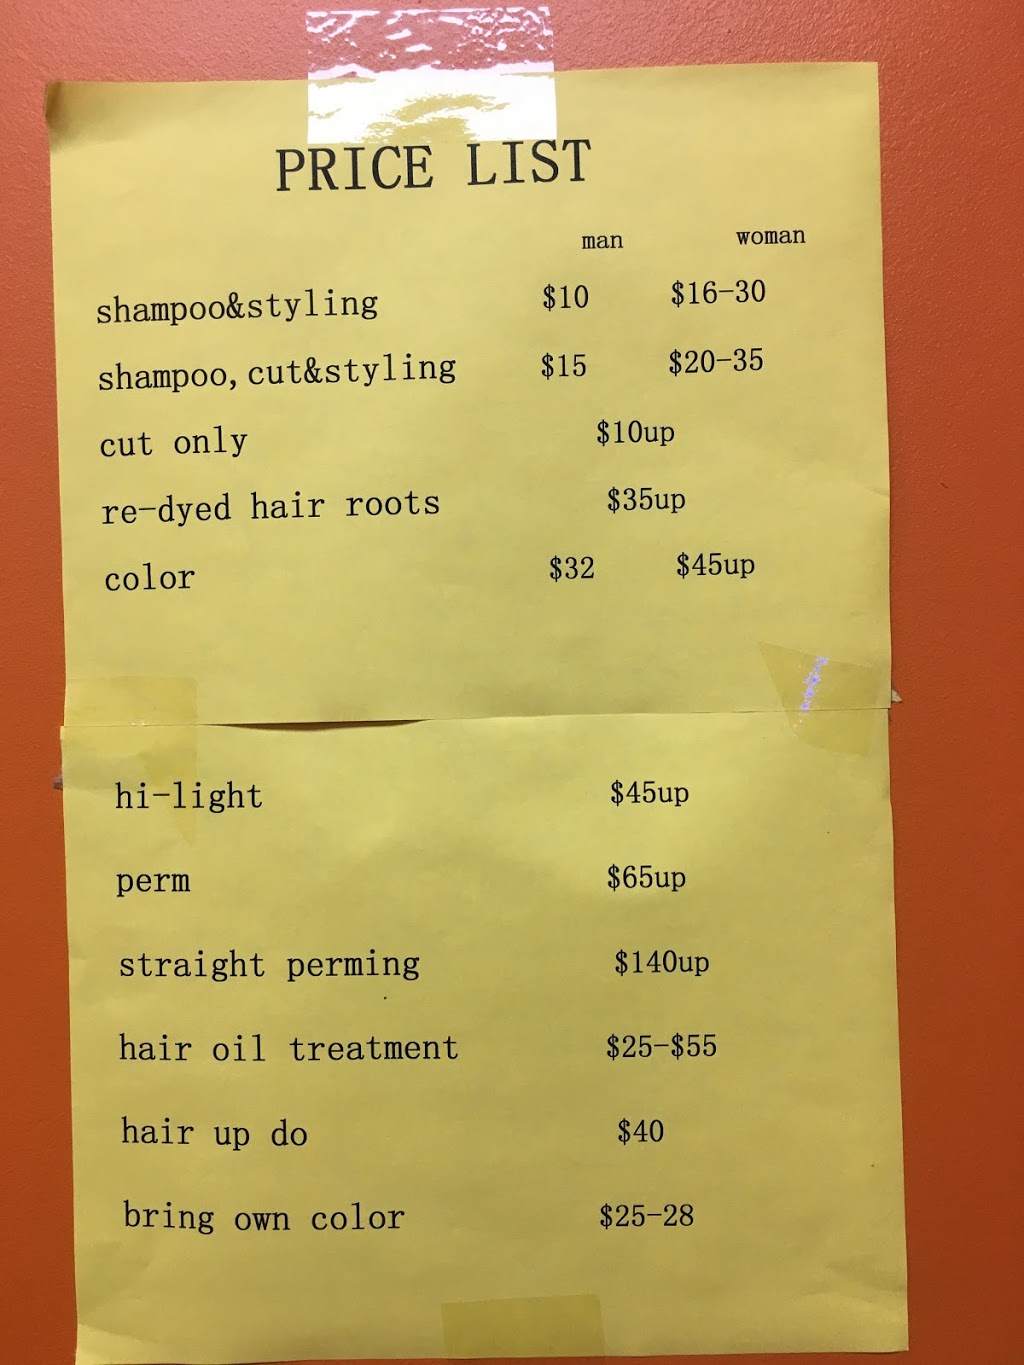 PRICE LIST
man woman
shampoo&styling $10 $16-30
shampoo,cut&styling $15 $20-35
cut only $10up
re-dyed hair roots $35up
color $32 $45up
hi-light $45up
perm $65up
straight perming $140up
hair oil treatment $25-$55
hair up do $40
bring own color $25-28